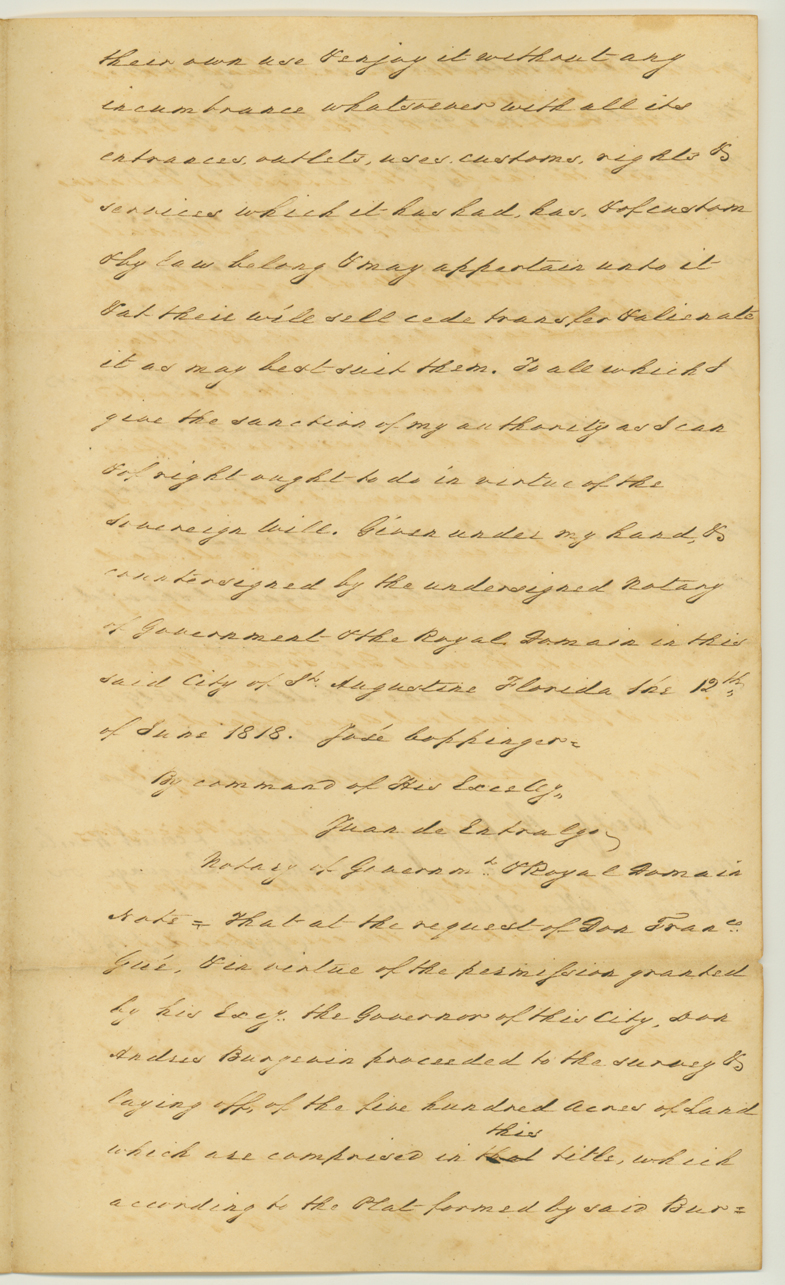 their own use & enjoy it without any
incumbrance whatsoever with all its
entrances, outlets, uses, customs, rights &
services which it has had, has, & of custom
& by Law belong & may appertain unto it
& at their will sell cede transfer & alienate
it as may best suit them. To all which I
give the sanction of my authority as I can
& of right ought to do in virtue of the
Sovereign Will. Given under my hand, &
countersigned by the undersigned Notary
of Government & the Royal Domain in this
said City of St. Augustine Florida the 12th,,
of June 1818. José Coppinger=
By command of His Excelly,,
Juan de Entralgo
Notary of Governmt. & Royal Domain
Note = That at the request of Don Franco.
Gué, & in virtue of the permission granted
by his Excy. the Governor of this City, Don
Andres Burgevin proceeded to the survey &
laying off, of the five hundred Acres of Land
which are comprised in this title, which
according to the Plat formed by said Bur=